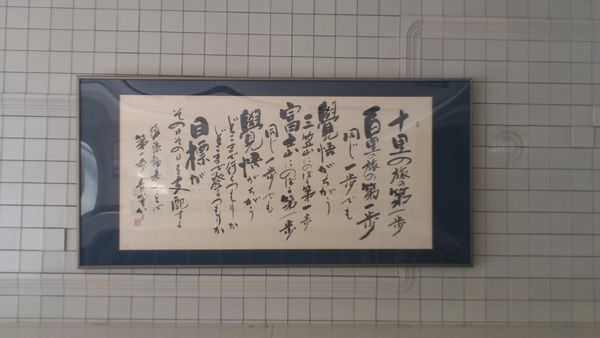 十里の旅の第一歩
百里の旅の第一歩
同じ一歩でも
覺悟がちがう
三笠山にのぼる第一歩
富士にのぼる第一歩
同じ一歩でも
覺悟がちがう
どこまで行くつもりか
どこまで登るつもりか
目標が
その日その日を支配する
後藤静香
第一歩